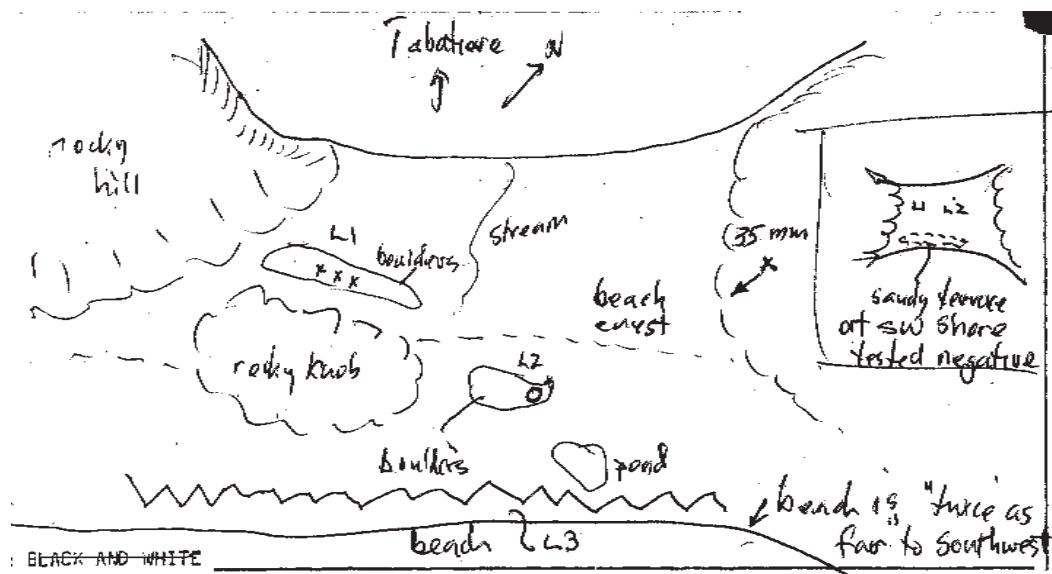 N
rocky
hill
L1
boulders
stream
35 mm
beach
crest
rocky knob
L2
boulders
pond
beach
L3
L1 L2
sandy terrace
at SW shore
tested negative
beach is "twice" as
far to southwest
: BLACK AND WHITE